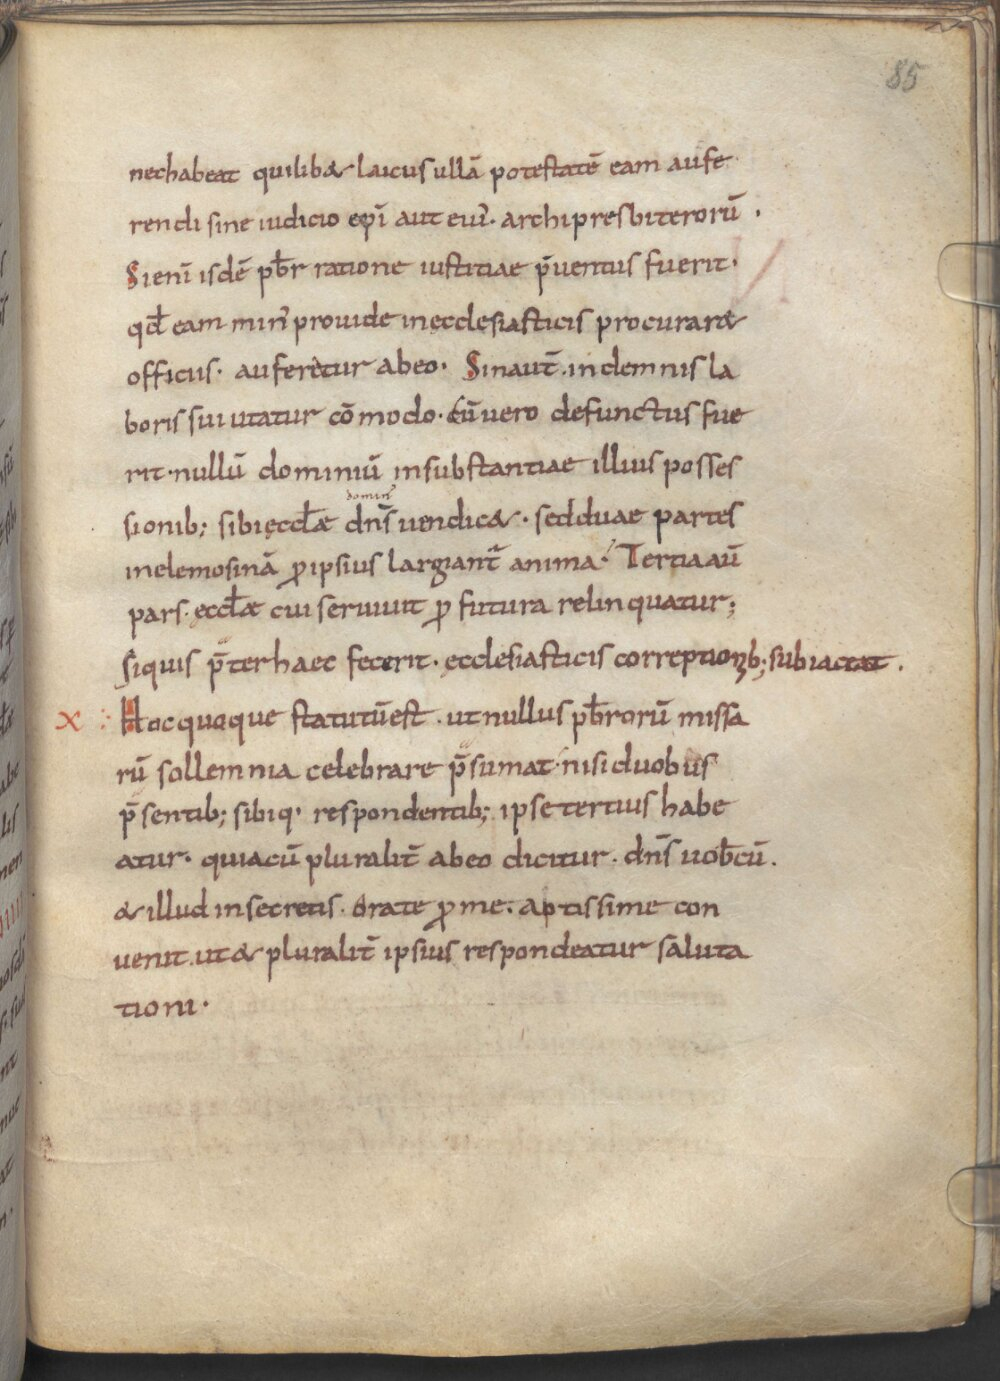 85
nec habeat quilib& laicus ullā potestatē eam aufe
rendi sine iudicio epī aut eiuˢ. archipresbiterorū .
Si enī isdē pb̄r ratione iustitiae p̄uentus fuerit·
qd̄ eam min᾽ prouide in ęcclesiasticis procurar&
officiis· auferetur ab eo· Sin aut̄ . indemnis la
boris sui utatur cōmodo· cū uero defunctus fue
rit· nullū dominiū in substantiae illius posses
sionib; sibi ęccl̄ae dn̄s uendic&· sed duae partes
domin᾽
in elemosinā ꝓ ipsius largiant᷑ anima· Tertia aū
pars· ęccl̄ae cui seruiuit ꝓ futura relinquatur;
Siquis p̄ter haec fecerit· ęcclesiasticis correptionib; subiaceat .
X Hoc quoque statutū est . ut nullus pb̄rorū missa
rū sollemnia celebrare p̄sumat· nisi duobus
p̄sentib; sibiq· respondentib; ipse tertius habe
atur· quia cū pluralit̄ ab eo dicitur· dn̄s uob̄cū .
& illud in secretis· Orate ꝓ me. aptissime con
uenit . ut & pluralit̄ ipsius respondeatur saluta
tioni·